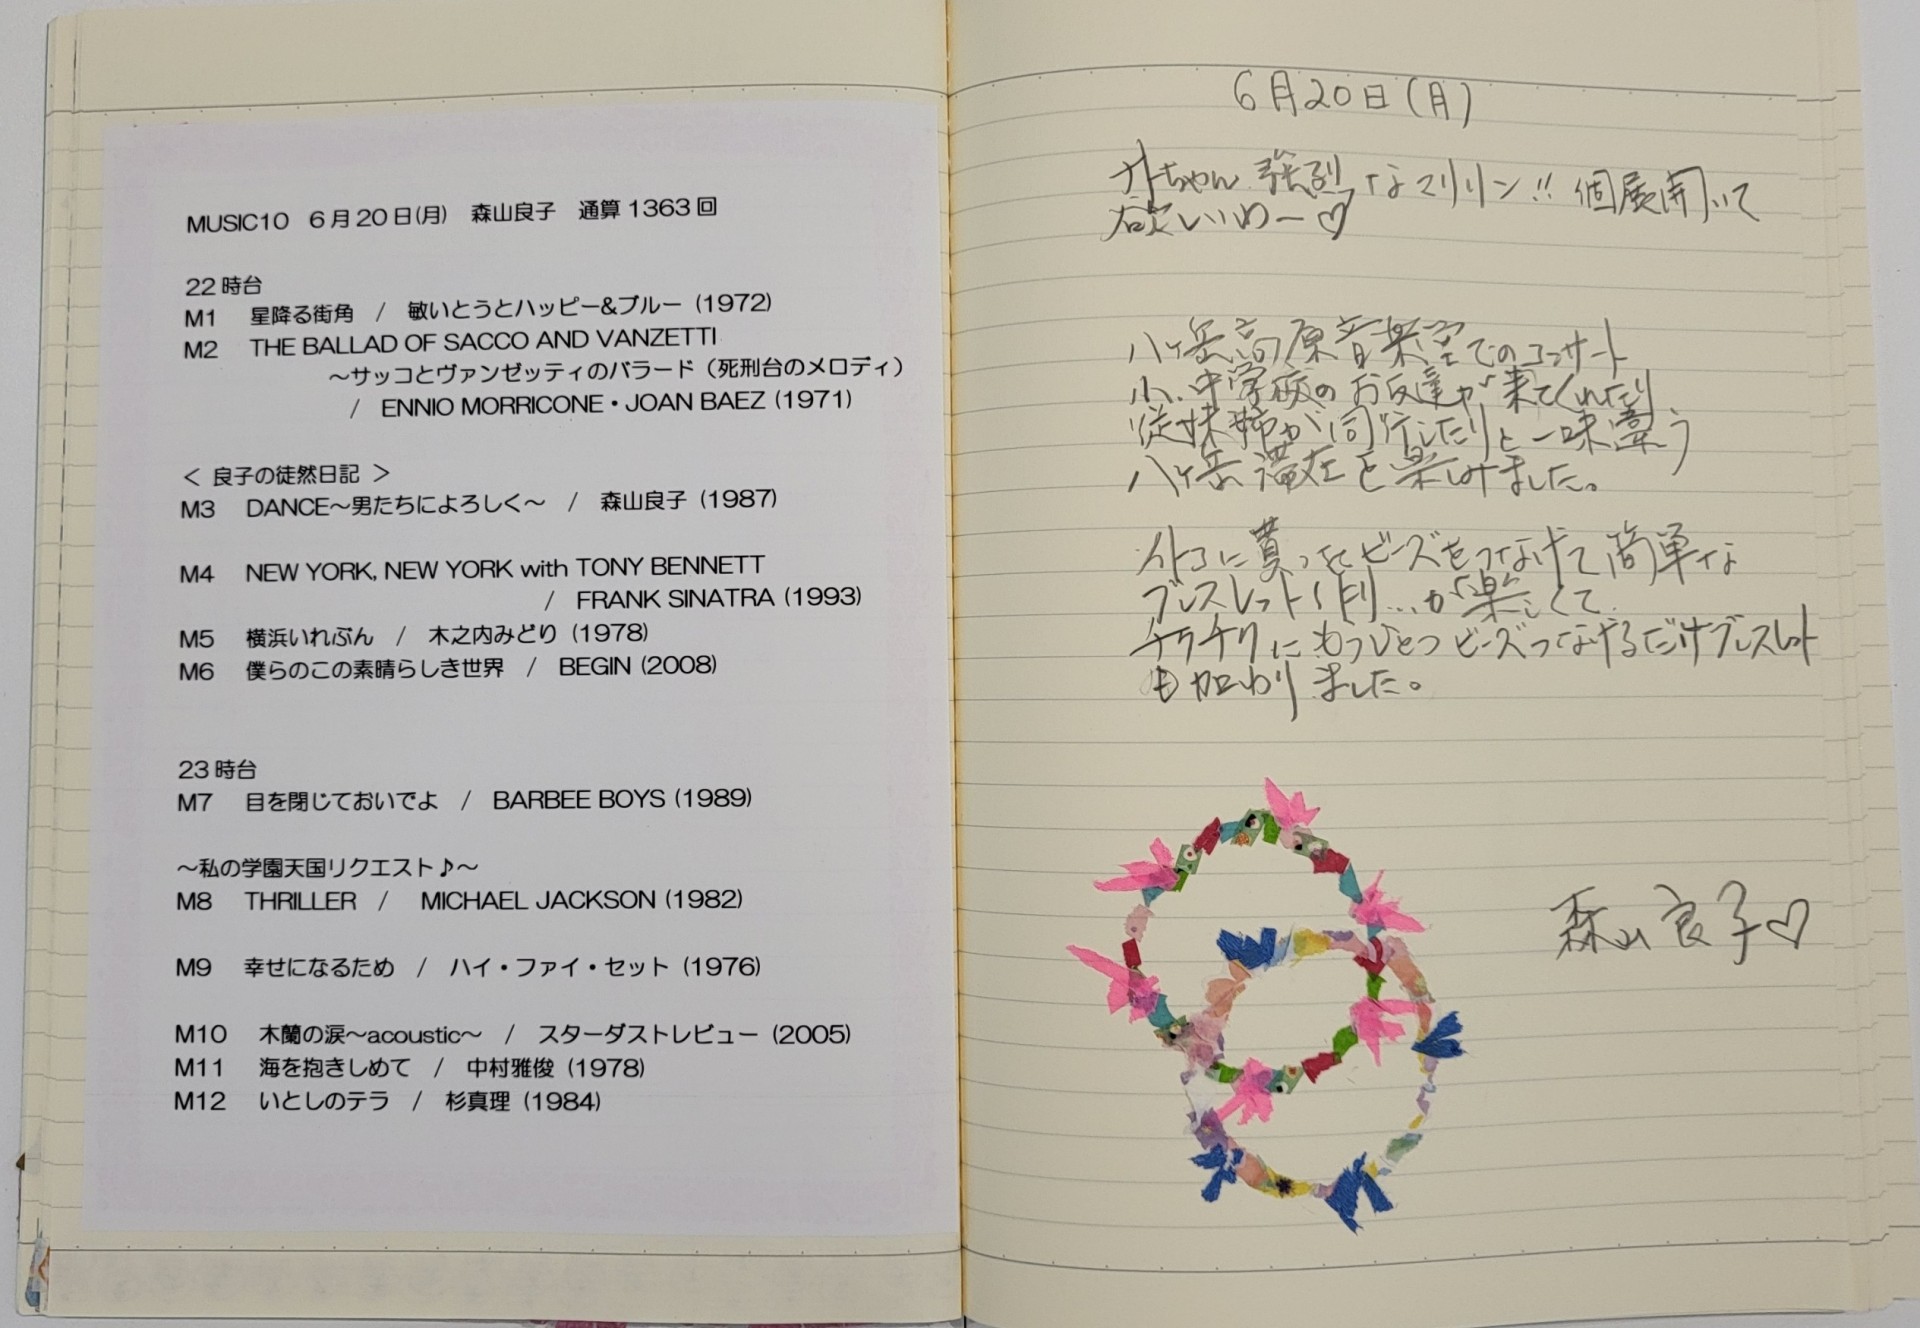 MUSIC10 6月20日(月) 森山良子 通算1363回
22時台
M1 星降る街角 / 敏いとうとハッピー&ブルー (1972)
M2 THE BALLAD OF SACCO AND VANZETTI
～サッコとヴァンゼッティのバラード（死刑台のメロディ）
/ ENNIO MORRICONE・JOAN BAEZ (1971)
＜ 良子の徒然日記 ＞
M3 DANCE～男たちによろしく～ / 森山良子 (1987)
M4 NEW YORK, NEW YORK with TONY BENNETT
/ FRANK SINATRA (1993)
M5 横浜いれぶん / 木之内みどり (1978)
M6 僕らのこの素晴らしき世界 / BEGIN (2008)
23時台
M7 目を閉じておいでよ / BARBEE BOYS (1989)
～私の学園天国リクエスト♪～
M8 THRILLER / MICHAEL JACKSON (1982)
M9 幸せになるため / ハイ・ファイ・セット (1976)
M10 木蘭の涙～acoustic～ / スターダストレビュー (2005)
M11 海を抱きしめて / 中村雅俊 (1978)
M12 いとしのテラ / 杉真理 (1984)
6月20日(月)
ちゃん 強烈なマリリン!! 個展開いて
欲しいわー♡
八ヶ岳高原音楽堂でのコンサート
小、中学校のお友達が来てくれたり
従姉が同行したりと一味違う
八ヶ岳滞在を楽しみました。
イトコに貰ったビーズをつなげて簡単な
ブレスレット作り...が楽しくて
チクチクにもうひとつビーズつなげるだけブレスレット
も加わりました。
森山良子♡